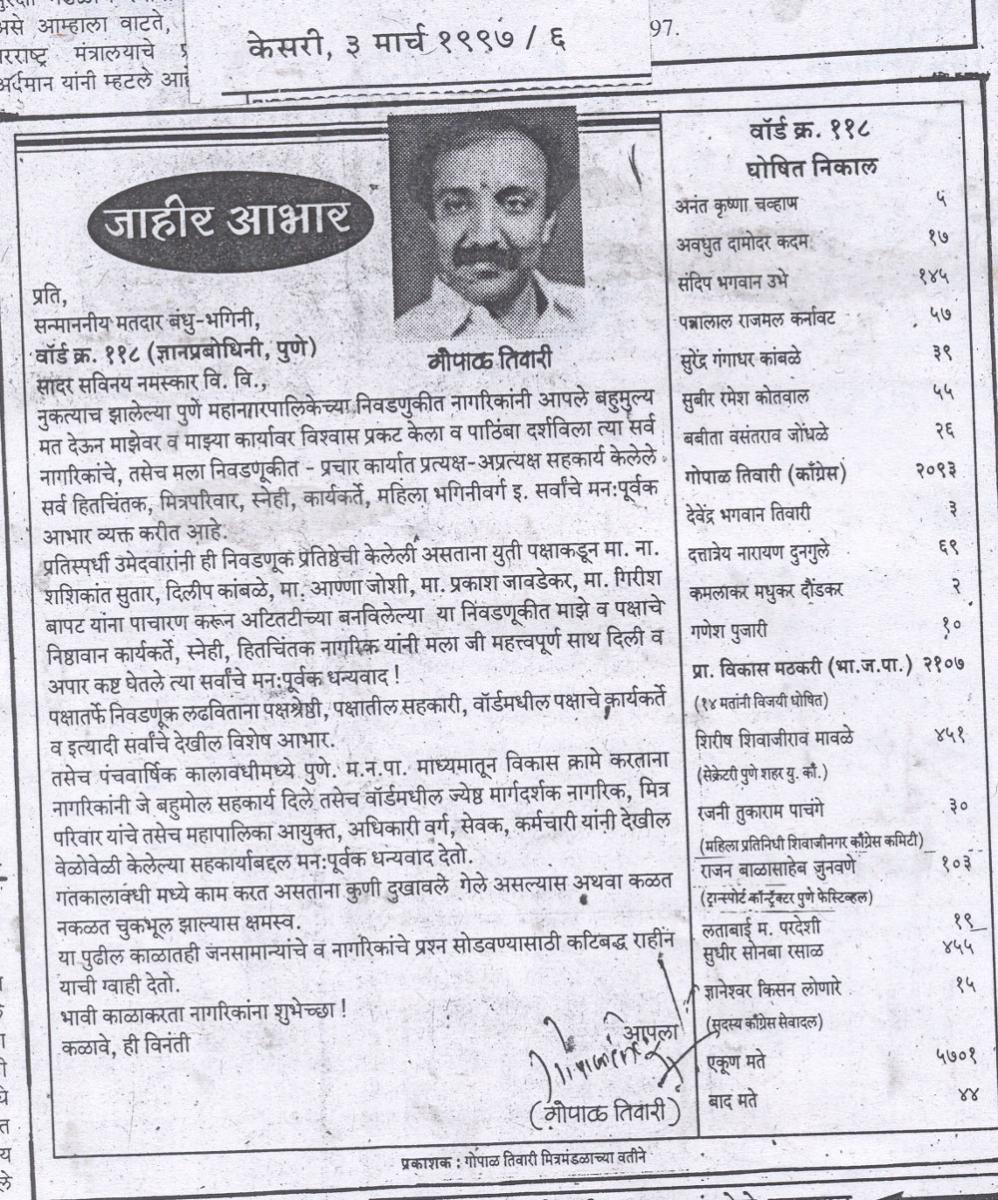 असे आम्हाला वाटते,
परराष्ट्र मंत्रालयाचे
अर्दमान यांनी म्हटले आहे
केसरी, ३ मार्च १९९७ / ६
97.
जाहीर आभार
गोपाळ तिवारी
प्रति,
सन्माननीय मतदार बंधु-भगिनी,
वॉर्ड क्र. ११८ (ज्ञानप्रबोधिनी, पुणे)
सादर सविनय नमस्कार वि. वि.,
नुकत्याच झालेल्या पुणे महानगरपालिकेच्या निवडणुकीत नागरिकांनी आपले बहुमुल्य
मत देऊन माझेवर व माझ्या कार्यावर विश्वास प्रकट केला व पाठिंबा दर्शविला त्या सर्व
नागरिकांचे, तसेच मला निवडणूकीत - प्रचार कार्यात प्रत्यक्ष-अप्रत्यक्ष सहकार्य केलेले
सर्व हितचिंतक, मित्रपरिवार, स्नेही, कार्यकर्ते, महिला भगिनीवर्ग इ. सर्वांचे मन:पूर्वक
आभार व्यक्त करीत आहे.
प्रतिस्पर्धी उमेदवारांनी ही निवडणूक प्रतिष्ठेची केलेली असताना युती पक्षाकडून मा. ना.
शशिकांत सुतार, दिलीप कांबळे, मा. आण्णा जोशी, मा. प्रकाश जावडेकर, मा. गिरीश
बापट यांना पाचारण करून अटितटीच्या बनविलेल्या या निवडणूकीत माझे व पक्षाचे
निष्ठावान कार्यकर्ते, स्नेही, हितचिंतक नागरिक यांनी मला जी महत्त्वपूर्ण साथ दिली व
अपार कष्ट घेतले त्या सर्वांचे मन:पूर्वक धन्यवाद !
पक्षातर्फे निवडणूक लढविताना पक्षश्रेष्ठी, पक्षातील सहकारी, वॉर्डमधील पक्षाचे कार्यकर्ते
व इत्यादी सर्वांचे देखील विशेष आभार.
तसेच पंचवार्षिक कालावधीमध्ये पुणे. म.न.पा. माध्यमातून विकास कामे करताना
नागरिकांनी जे बहुमोल सहकार्य दिले तसेच वॉर्डमधील ज्येष्ठ मार्गदर्शक नागरिक, मित्र
परिवार यांचे तसेच महापालिका आयुक्त, अधिकारी वर्ग, सेवक, कर्मचारी यांनी देखील
वेळोवेळी केलेल्या सहकार्याबद्दल मन:पूर्वक धन्यवाद देतो.
गतकालावधी मध्ये काम करत असताना कुणी दुखावले गेले असल्यास अथवा कळत
नकळत चुकभूल झाल्यास क्षमस्व.
या पुढील काळातही जनसामान्यांचे व नागरिकांचे प्रश्न सोडवण्यासाठी कटिबद्ध राहीन
याची ग्वाही देतो.
भावी काळाकरता नागरिकांना शुभेच्छा !
कळावे, ही विनंती
आपला
(गोपाळ तिवारी)
वॉर्ड क्र. ११८
घोषित निकाल
अनंत कृष्णा चव्हाण ५
अवधुत दामोदर कदम १७
संदिप भगवान उभे १४५
पन्नालाल राजमल कर्नावट ५७
सुरेंद्र गंगाधर कांबळे ३९
सुबीर रमेश कोतवाल ५५
बबीता वसंतराव जोंधळे २६
गोपाळ तिवारी (काँग्रेस) २०९३
देवेंद्र भगवान तिवारी ३
दत्तात्रेय नारायण दुनगुले ६९
कमलाकर मधुकर दौंडकर २
गणेश पुजारी १०
प्रा. विकास मठकरी (भा.ज.पा.) २१०७
(१४ मतांनी विजयी घोषित)
शिरीष शिवाजीराव मावळे ४५१
(सेक्रेटरी पुणे शहर यु. काँ.)
रजनी तुकाराम पाचंगे ३०
(महिला प्रतिनिधी शिवाजीनगर काँग्रेस कमिटी)
राजन बाळासाहेब जुनवणे १०३
(ट्रान्स्पोर्ट कॉन्ट्रॅक्टर पुणे फेस्टिव्हल)
लताबाई म. परदेशी १९
सुधीर सोनबा रसाळ ४५५
ज्ञानेश्वर किसन लोणारे १५
(सदस्य काँग्रेस सेवादल)
एकूण मते ५७०१
बाद मते ४४
प्रकाशक : गोपाळ तिवारी मित्रमंडळाच्या वतीने